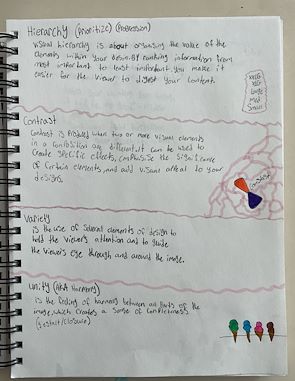 Hierarchy (Prioritize) (Progression)
visual hierarchy is about organizing the value of the
elements within your design. By ranking information from
most important to least important, you make it
easier for the viewer to digest your content.
Large
Med
Small
Contrast
Contrast is Produced when two or more visual elements
in a are different. It can be used to
create specific effects, emphasise the significance
of certain elements, and add visual appeal to your
designs.
Contrast
Variety
is the use of several elements of design to
hold the viewer's attention and to guide
the viewer's eye through and around the image.
Unity (AKA Harmony)
is the feeling of harmony between all parts of the
image, which creates a sense of
(gestalt/closure)